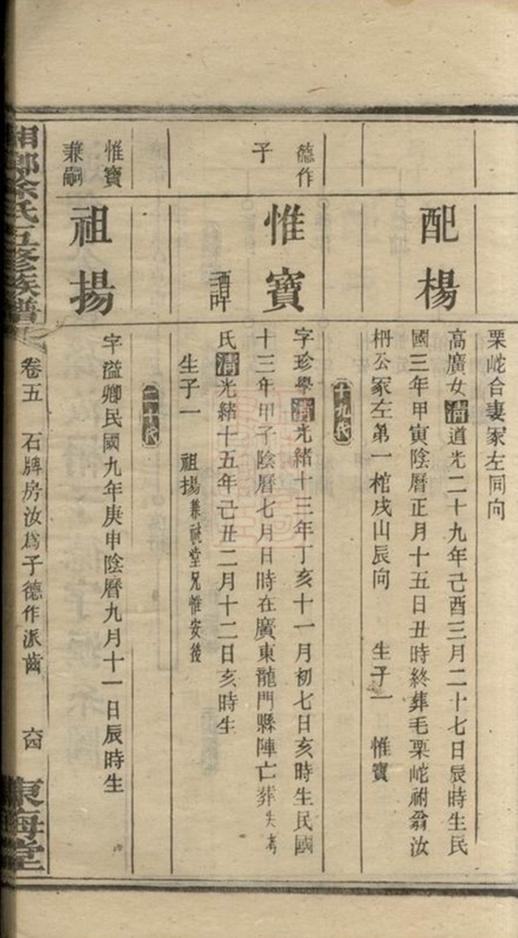 栗屹合妻冢左同向
配楊
高廣女清道光二十九年己酉三月二十七日辰時生民
國三年甲寅陰曆正月十五日丑時終葬毛栗屹祔翁汝
枬公冢左第一棺戌山辰向 生子一 惟寶
十九代
德作
子
惟寶
字珍學清光緒十三年丁亥十一月初七日亥時生民國
十三年甲子陰曆七月日時在廣東龍門縣陣亡葬失考
譚
氏清光緒十五年己丑二月十二日亥時生
生子一 祖揚兼祧堂兄惟安後
二十代
惟寶
兼嗣
祖揚
字溢卿民國九年庚申陰曆九月十一日辰時生
湘鄉徐氏五修族譜
卷五 石牌房汝為子德作派齒
東海堂